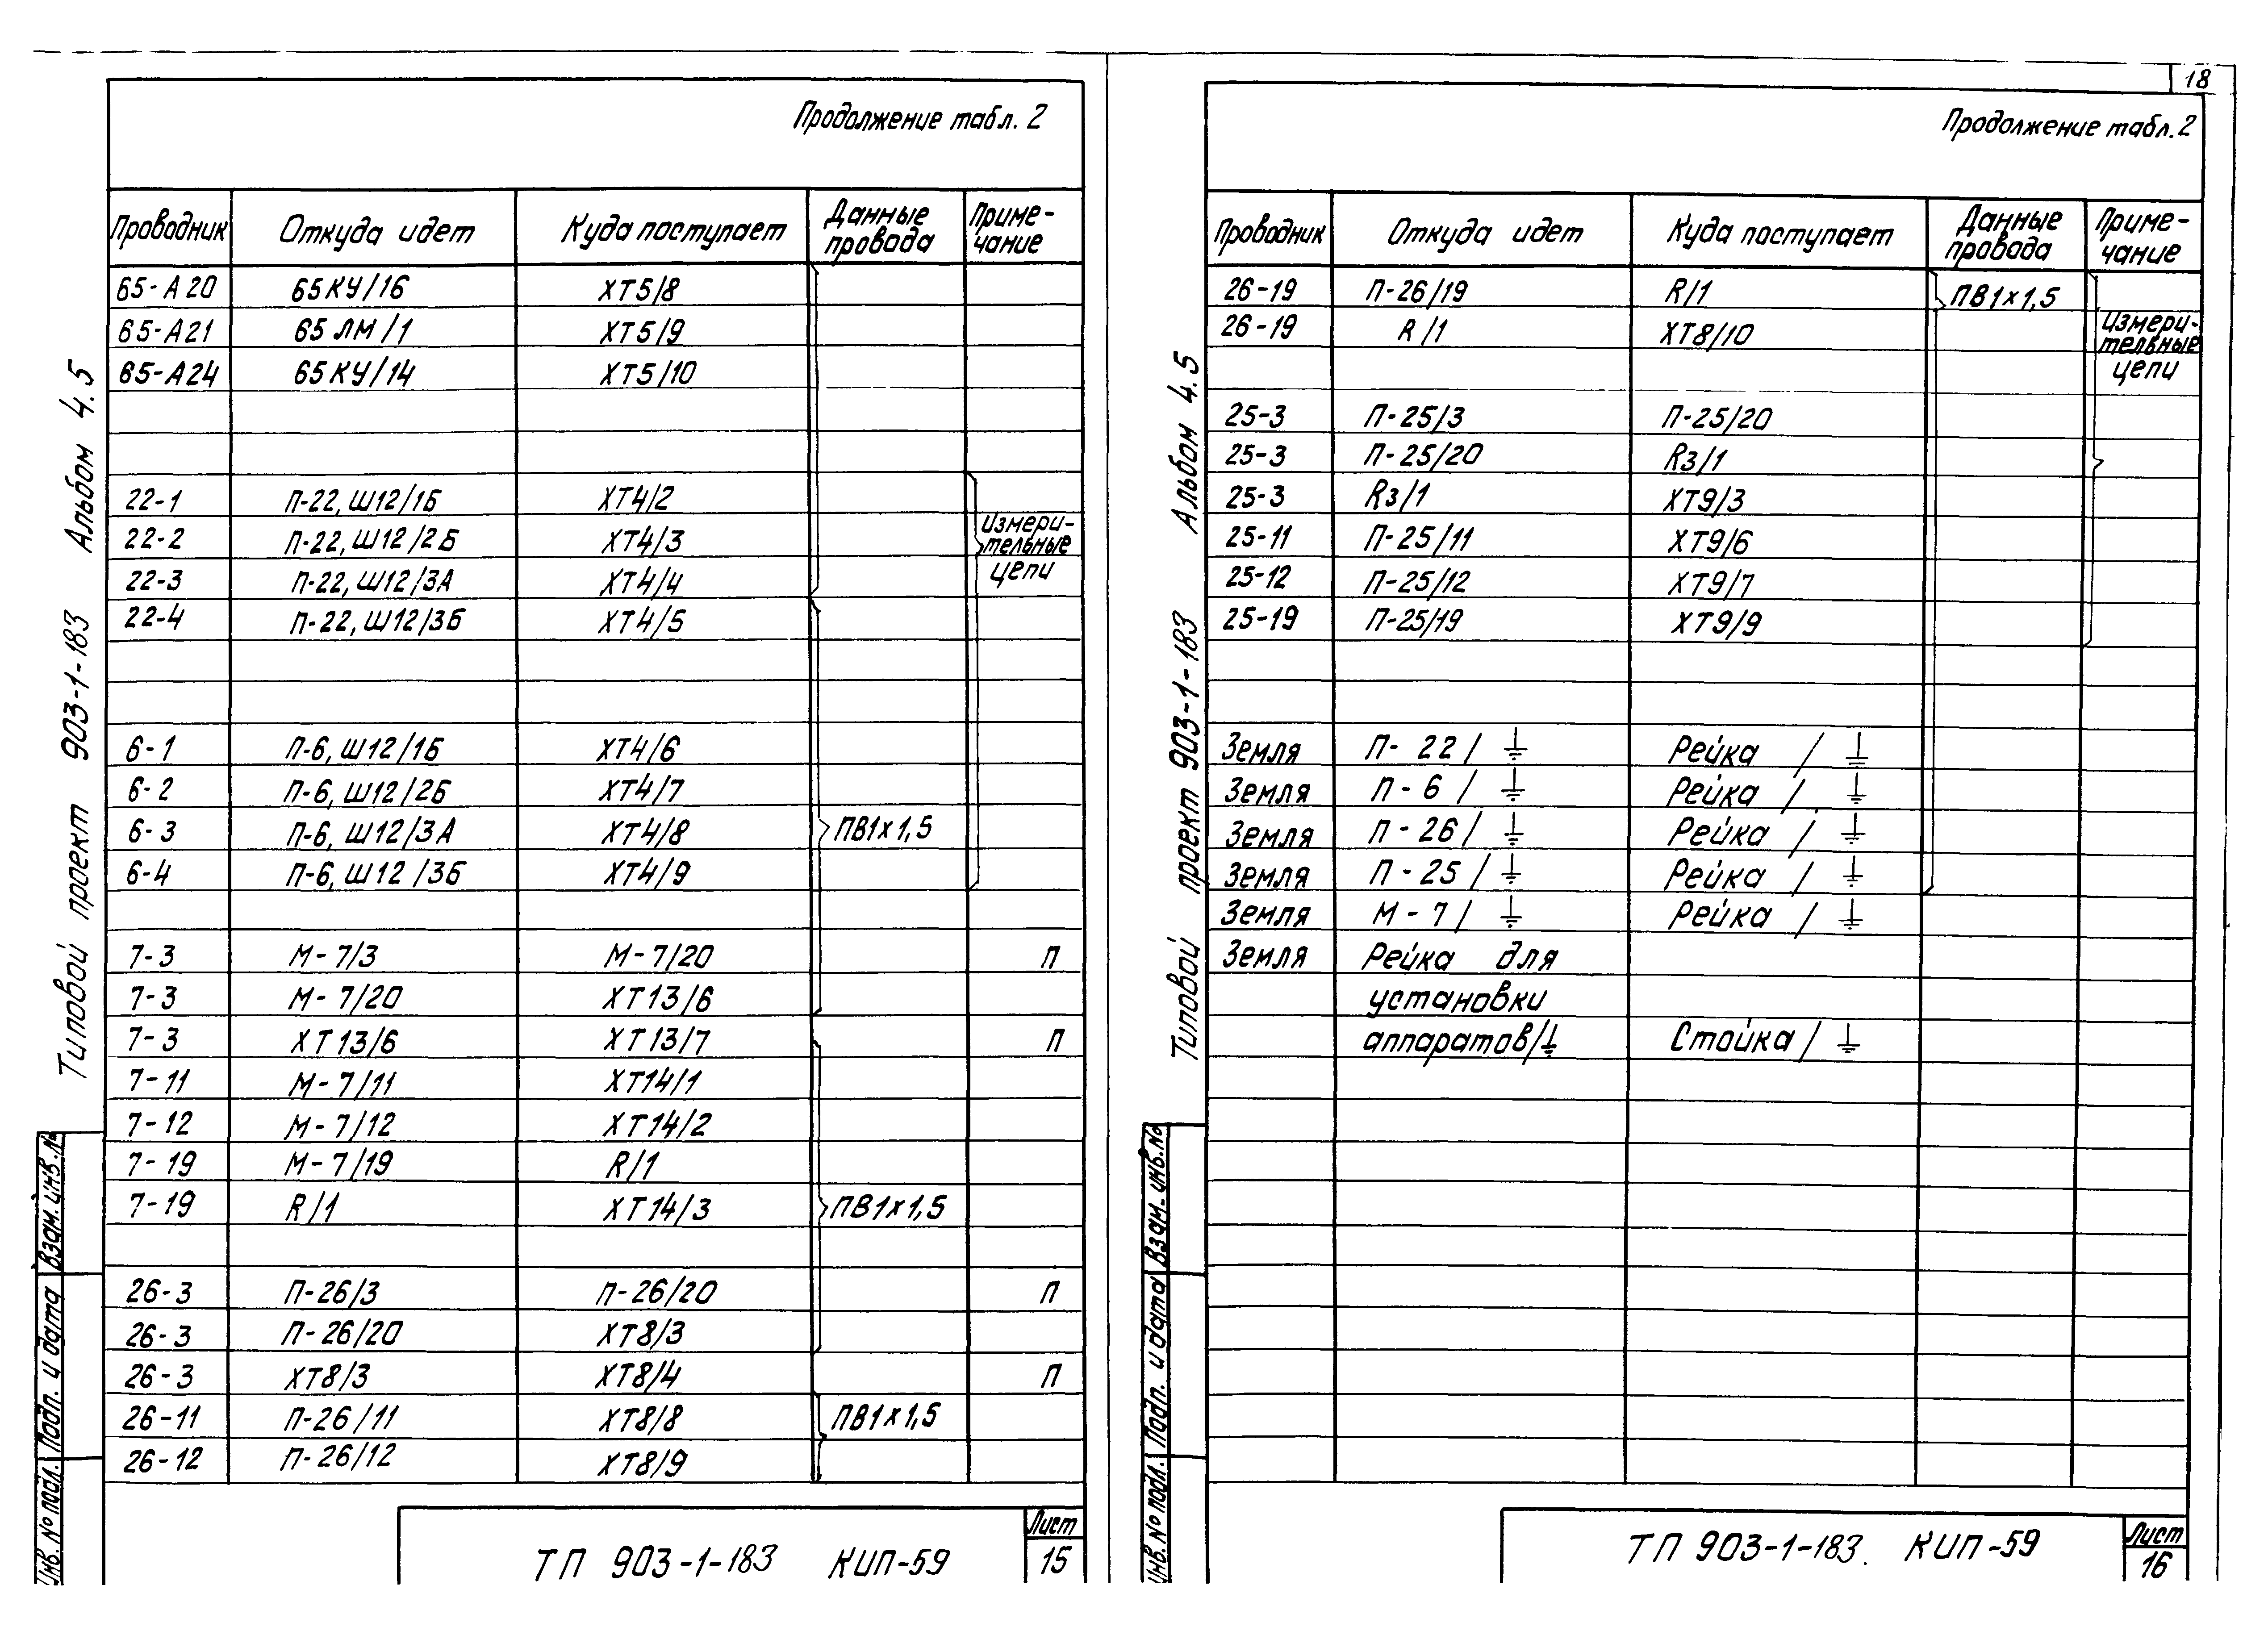 18
Продолжение табл. 2
Проводник Откуда идет Куда поступает Данные провода Приме-чание
65-А20 65КУ/16 ХТ5/8
65-А21 65ЛМ/1 ХТ5/9
65-А24 65КУ/14 ХТ5/10
22-1 П-22, Ш12/1Б ХТ4/2
22-2 П-22, Ш12/2Б ХТ4/3 Измери-тельные
22-3 П-22, Ш12/3А ХТ4/4 цепи
22-4 П-22, Ш12/3Б ХТ4/5
6-1 П-6, Ш12/1Б ХТ4/6
6-2 П-6, Ш12/2Б ХТ4/7
6-3 П-6, Ш12/3А ХТ4/8 ПВ1х1,5
6-4 П-6, Ш12/3Б ХТ4/9
7-3 М-7/3 М-7/20 П
7-3 М-7/20 ХТ13/6
7-3 ХТ13/6 ХТ13/7 П
7-11 М-7/11 ХТ14/1
7-12 М-7/12 ХТ14/2
7-19 М-7/19 R/1
7-19 R/1 ХТ14/3 ПВ1х1,5
26-3 П-26/3 П-26/20 П
26-3 П-26/20 ХТ8/3
26-3 ХТ8/3 ХТ8/4 П
26-11 П-26/11 ХТ8/8 ПВ1х1,5
26-12 П-26/12 ХТ8/9
Типовой проект 903-1-183 Альбом 4.5
Инв. № подл. Подп. и дата Взам. инв. №
ТП 903-1-183 КИП-59
Лист
15
Продолжение табл. 2
Проводник Откуда идет Куда поступает Данные провода Приме-чание
26-19 П-26/19 R/1 ПВ1х1,5
26-19 R/1 ХТ8/10 Измери-тельные
цепи
25-3 П-25/3 П-25/20
25-3 П-25/20 R3/1
25-3 R3/1 ХТ9/3
25-11 П-25/11 ХТ9/6
25-12 П-25/12 ХТ9/7
25-19 П-25/19 ХТ9/9
Земля П-22/⏚ Рейка /⏚
Земля П-6/⏚ Рейка /⏚
Земля П-26/⏚ Рейка /⏚
Земля П-25/⏚ Рейка /⏚
Земля М-7/⏚ Рейка /⏚
Земля Рейка для
установки
аппаратов/⏚ Стойка/⏚
Типовой проект 903-1-183 Альбом 4.5
Инв. № подл. Подп. и дата Взам. инв. №
ТП 903-1-183. КИП-59
Лист
16